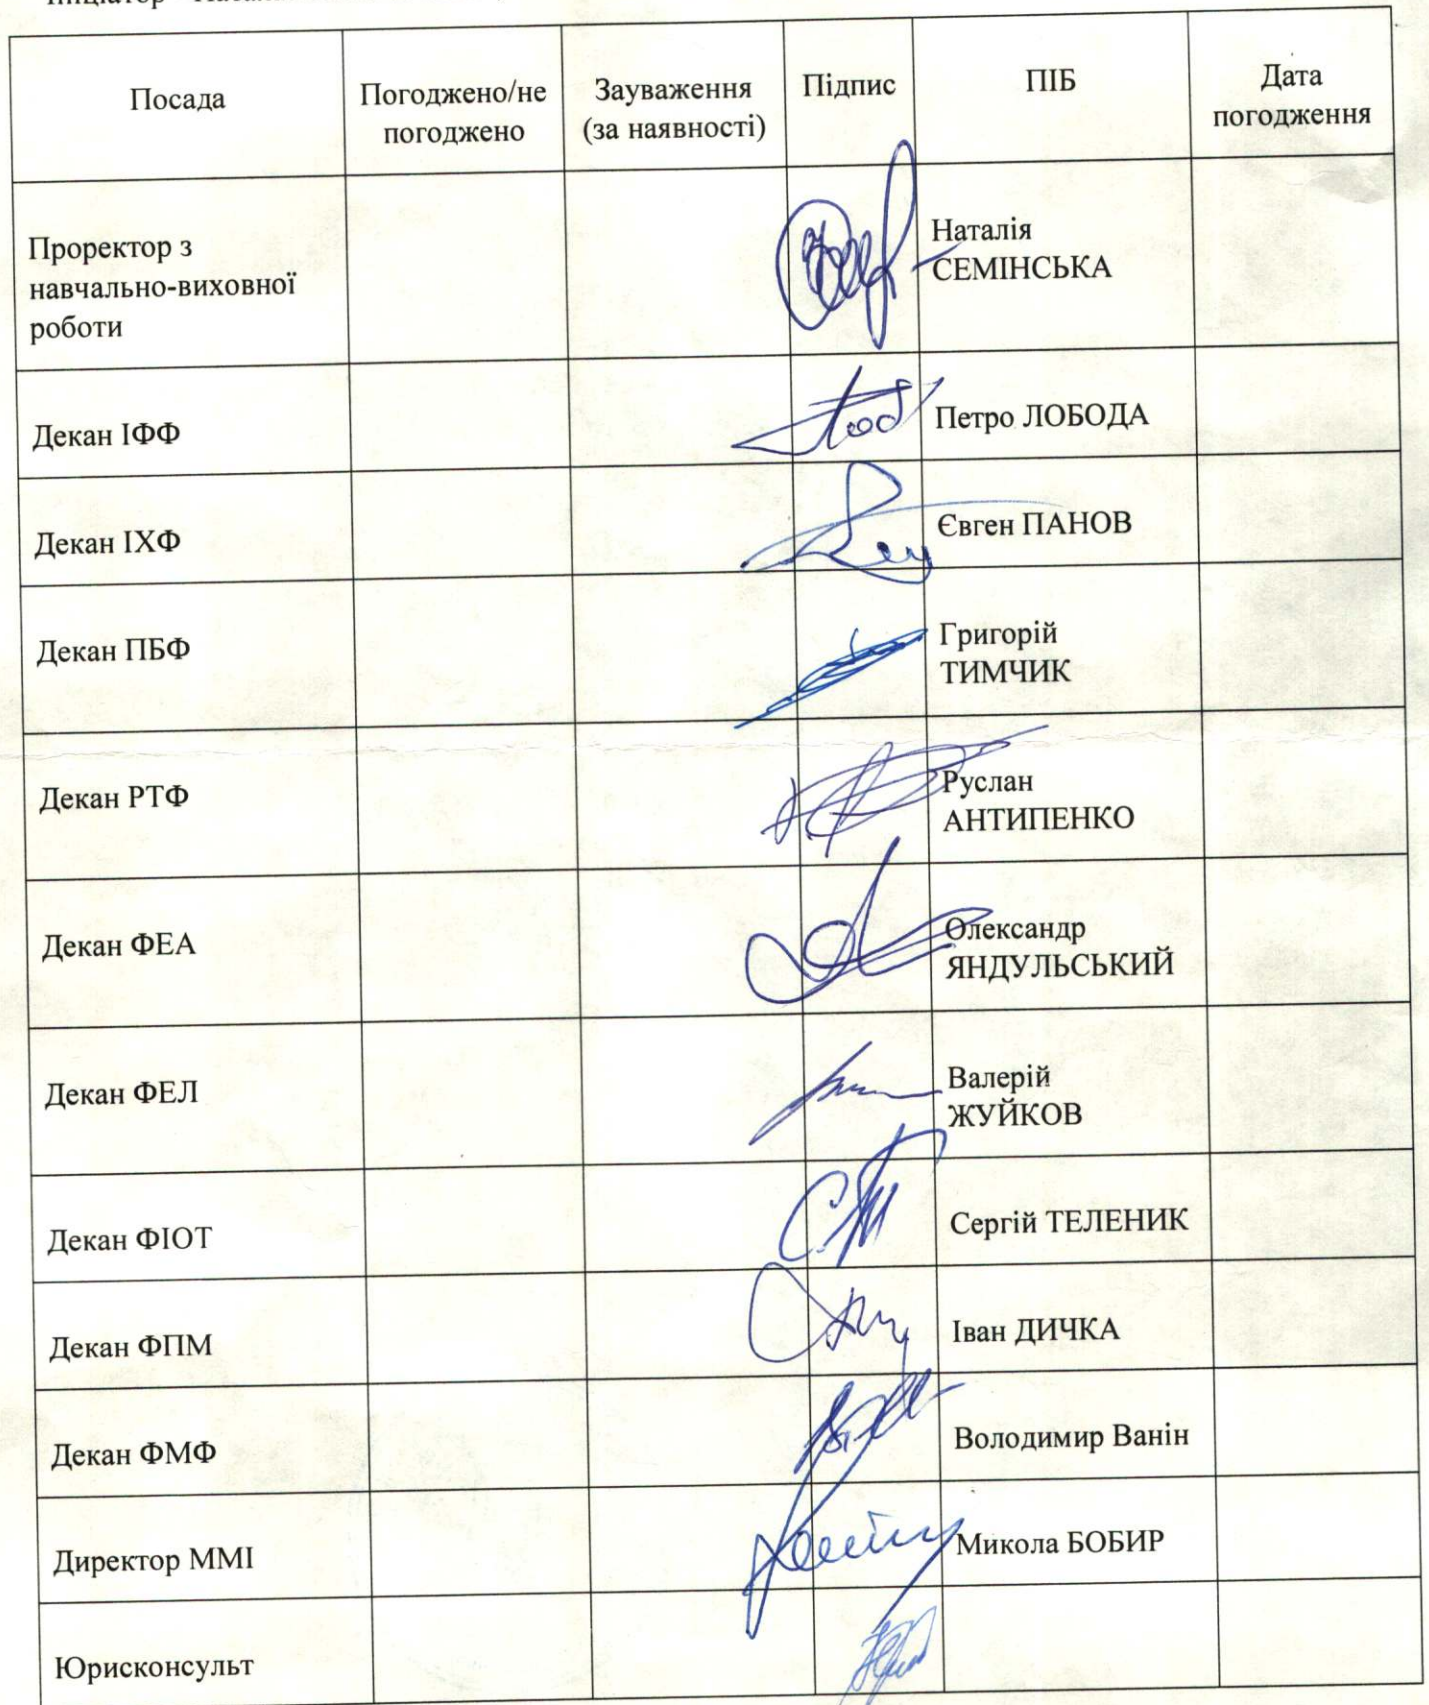 Посада
Погоджено/не
погоджено
Зауваження
(за наявності)
Підпис
ПІБ
Дата
погодження
Проректор з
навчально-виховної
роботи
Наталія
СЕМІНСЬКА
Декан ІФФ
Петро ЛОБОДА
Декан ІХФ
Євген ПАНОВ
Декан ПБФ
Григорій
ТИМЧИК
Декан РТФ
Руслан
АНТИПЕНКО
Декан ФЕА
Олександр
ЯНДУЛЬСЬКИЙ
Декан ФЕЛ
Валерій
ЖУЙКОВ
Декан ФІОТ
Сергій ТЕЛЕНИК
Декан ФПМ
Іван ДИЧКА
Декан ФМФ
Володимир Ванін
Директор ММІ
Микола БОБИР
Юрисконсульт